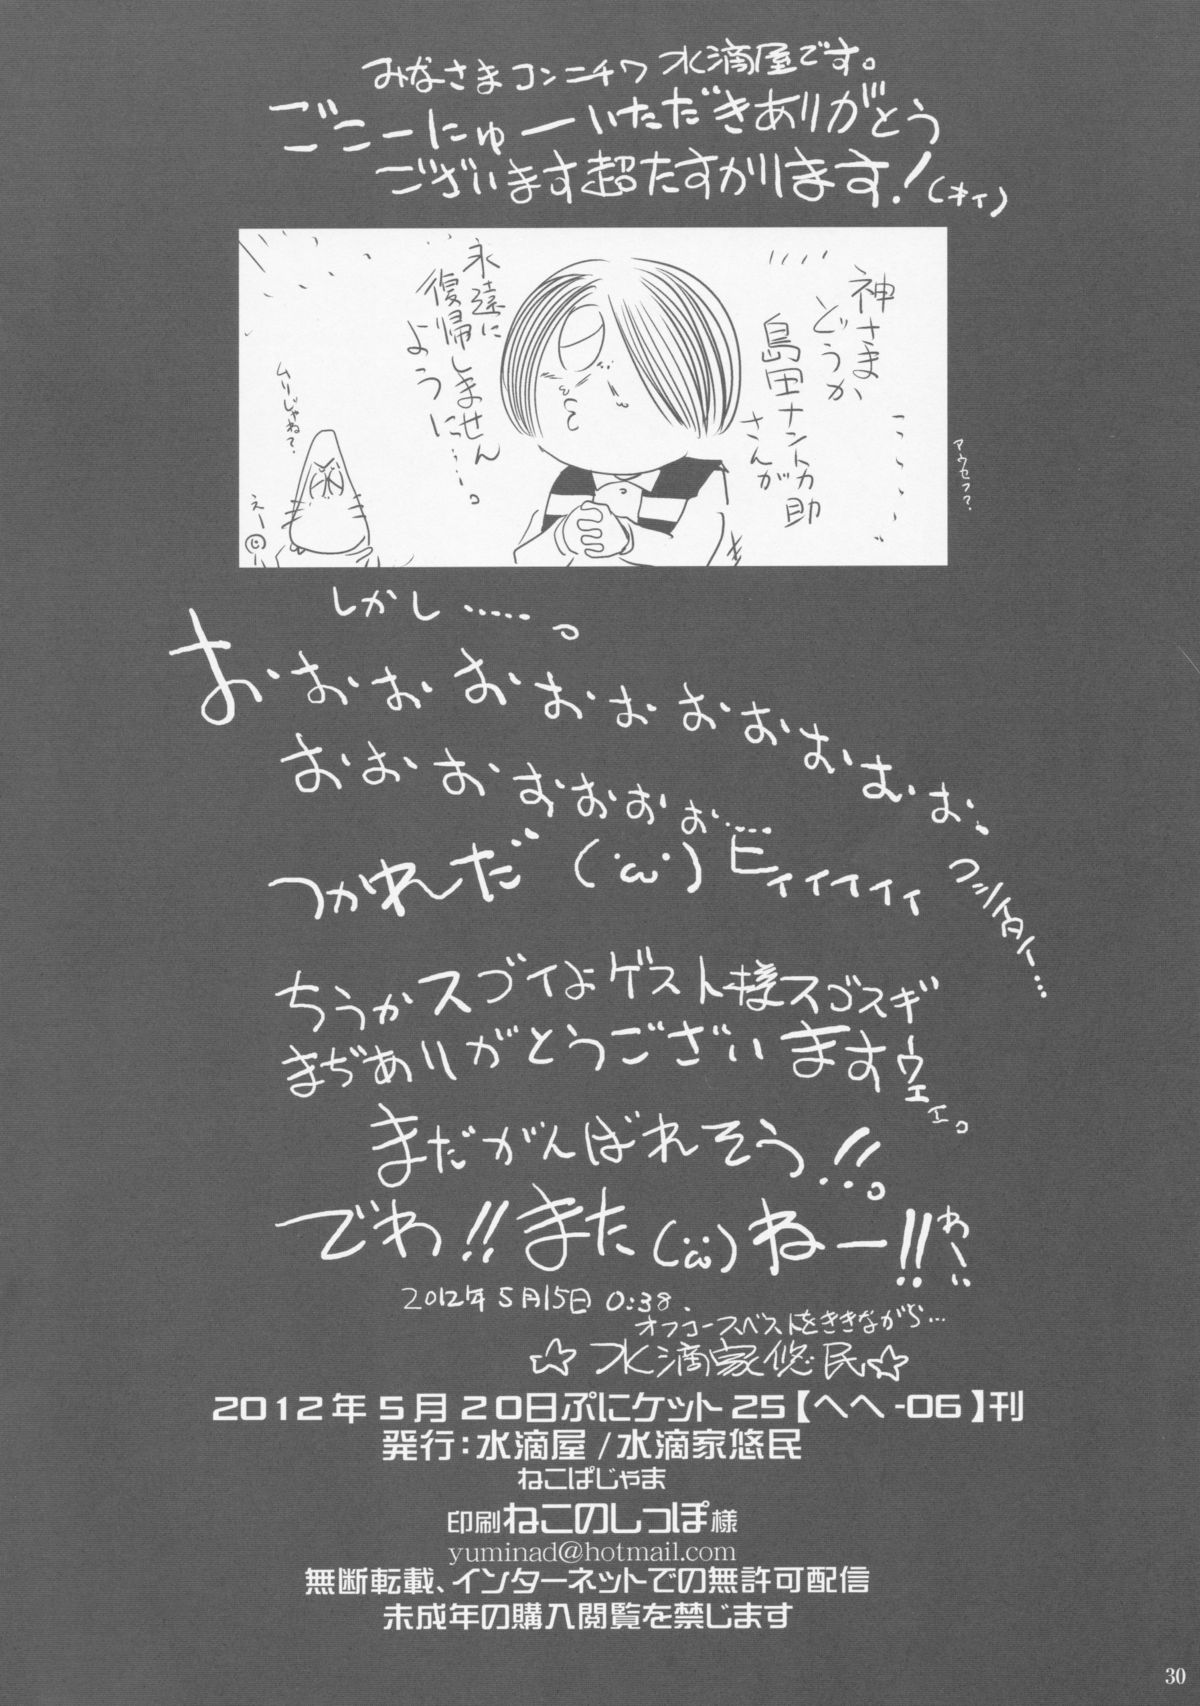 みなさまコンニチワ 水滴屋です。
ごこーにゅーいただきありがとう
ございます超たすかります!(オイ)
神さま
どうか
島田ナントカ助
さんが
永遠に
復帰しません
ように……。
ムリじゃね?
えー
アウセフ?
しかし……。
おぉぉおぉぉぉぉぉぉぉ、
おぉぉぉぉぉぉ……
つかれだ(´ω`)ビィィィィィ
コシイタイ…
ちうかスゴイよゲスト様スゴスギ
まぢありがとうございますーウェェ。
まだがんばれそう!!。
でわ!!また(´ω`)ねー!!
わーい
2012年5月15日 0:38.
オフコースベストをききながら…
☆水滴家悠民☆
2012年5月20日ぷにケット25【へへ-06】刊
発行:水滴屋/水滴家悠民
ねこぱじゃま
印刷ねこのしっぽ様
yuminad@hotmail.com
無断転載、インターネットでの無許可配信
未成年の購入閲覧を禁じます
30